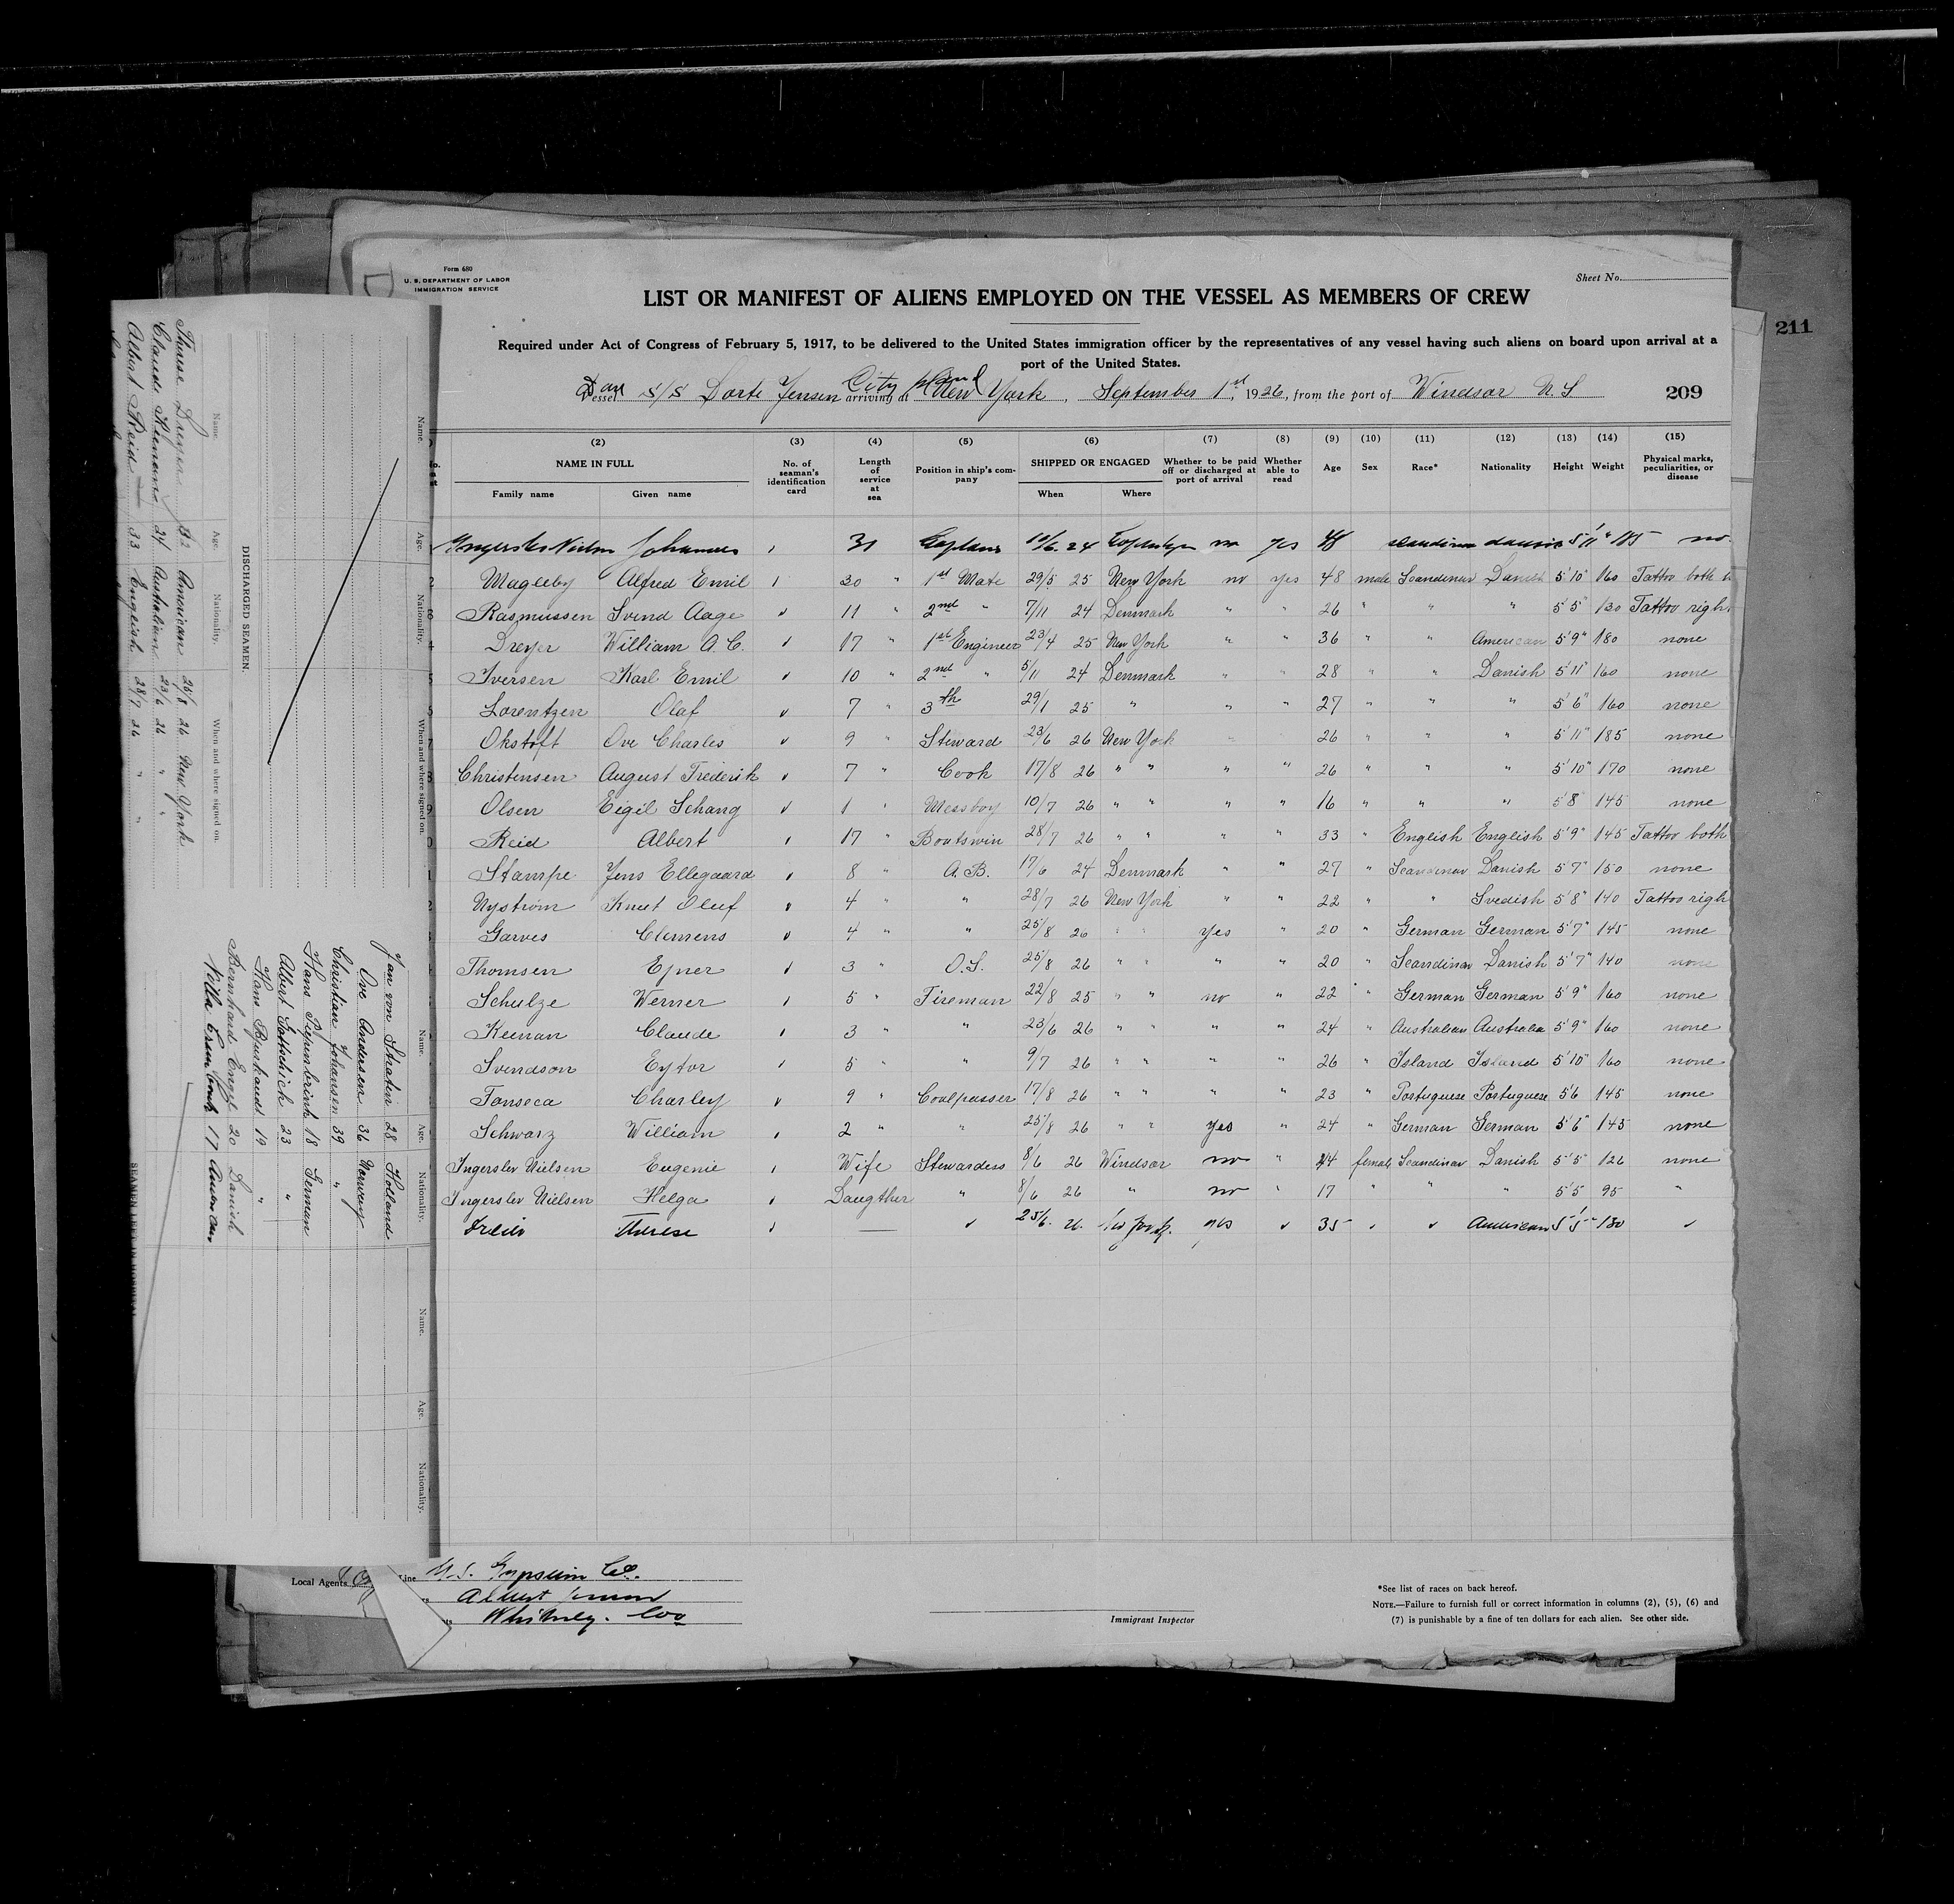 Form 680
U. S. DEPARTMENT OF LABOR
IMMIGRATION SERVICE
Sheet No.
LIST OR MANIFEST OF ALIENS EMPLOYED ON THE VESSEL AS MEMBERS OF CREW
211
Required under Act of Congress of February 5, 1917, to be delivered to the United States immigration officer by the representatives of any vessel having such aliens on board upon arrival at a
port of the United States.
Dan Vessel S/S Dorte Jensen City Island arriving at New York, September 1st, 1926, from the port of Windsor N S 209
(2) (3) (4) (5) (6) (7) (8) (9) (10) (11) (12) (13) (14) (15)
NAME IN FULL No. of seaman's identification card Length of service at sea Position in ship's company SHIPPED OR ENGAGED Whether to be paid off or discharged at port of arrival Whether able to read Age Sex Race* Nationality Height Weight Physical marks, peculiarities, or disease
Family name Given name When Where
Johannes 31 no yes 48 5'11" 185 no
Magleby Alfred Emil 30 " 1st Mate 29/5 25 New York no yes 48 male Scandinav Danish 5'10" 160 Tattoo both
Rasmussen Svend Aage 11 " 2nd " 7/11 24 Denmark " " 26 " " " 5'5" 130 Tattoo right
Dreyer William A. C. 17 " 1st Engineer 23/4 25 New York " " 36 " " American 5'9" 180 none
Iversen Karl Emil 10 " 2nd " 5/11 24 Denmark " " 28 " " Danish 5'11" 160 none
Lorentzen Olaf 7 " 3th 29/1 25 " " " 27 " " " 5'6" 160 none
Okstoft Ove Charles 9 " Steward 23/6 26 New York " 26 " " " 5'11" 185 none
Christensen August Frederik 7 " Cook 17/8 26 " " " " 26 " " " 5'10" 170 none
Olsen Eigil Schang 1 " Messboy 10/7 26 " " " " 16 " " " 5'8" 145 none
Reid Albert 17 " Boatswin 28/7 26 " " " " 33 " English English 5'9" 145 Tattoo both
Stampe Jens Ellegaard 8 " A.B. 17/6 24 Denmark " " 27 " Scandinav Danish 5'7" 150 none
Nystrom Knut Oluf 4 " " 28/7 26 New York " " 22 " " Svedish 5'8" 140 Tattoo righ
Garves Clemens 4 " " 25/8 26 " " yes " 20 " German German 5'7" 145 none
Thomsen Ejner 3 " O.S. 25/8 26 " " " " 20 " Scandinav Danish 5'7" 140 none
Schulze Werner 5 " Fireman 22/8 25 " " no " 22 " German German 5'9" 160 none
Keenan Claude 3 " " 23/6 26 " " " " 24 " Australian Australia 5'9" 160 none
Svendson Eytor 5 " " 9/7 26 " " " " 26 " Island Island 5'10" 160 none
Fonseca Charley 9 " Coalpasser 17/8 26 " " " " 23 " Portuguese Portuguese 5'6 145 none
Schwarz William 2 " " 25/8 26 " " yes " 24 " German German 5'6" 145 none
Ingerslev Nielsen Eugenie Wife Stewardess 8/6 26 Windsor no " 44 female Scandinav Danish 5'5" 126 none
Ingerslev Nielsen Helga Daugther " 8/6 26 " no " 17 " " " 5'5 95 "
Therese yes 35 American 5'5" 130
U.S. Gypsum Co.
Local Agents
Line
Whitney.
Immigrant Inspector
*See list of races on back hereof.
NOTE.—Failure to furnish full or correct information in columns (2), (5), (6) and
(7) is punishable by a fine of ten dollars for each alien. See other side.
Name. Age. Nationality. When and where signed on.
DISCHARGED SEAMEN.
Name. Age. Nationality. When and where signed on.
Therese Dreyer 32 American 25/8 26 New York
Claude Keenan 24 Australian 23/6 26 " "
Albert Reid 33 English 28/7 26 " "
Name. Age. Nationality.
Jan von Straten 28 Holland
Ove Andersen 36 Norway
Christian Johansen 39 "
Hans Piepenbrink 18 German
Albert Gottschick 23 "
Hans Burkandt 19 "
Bernhard Engel 20 Danish
17 American
Name. Age. Nationality.